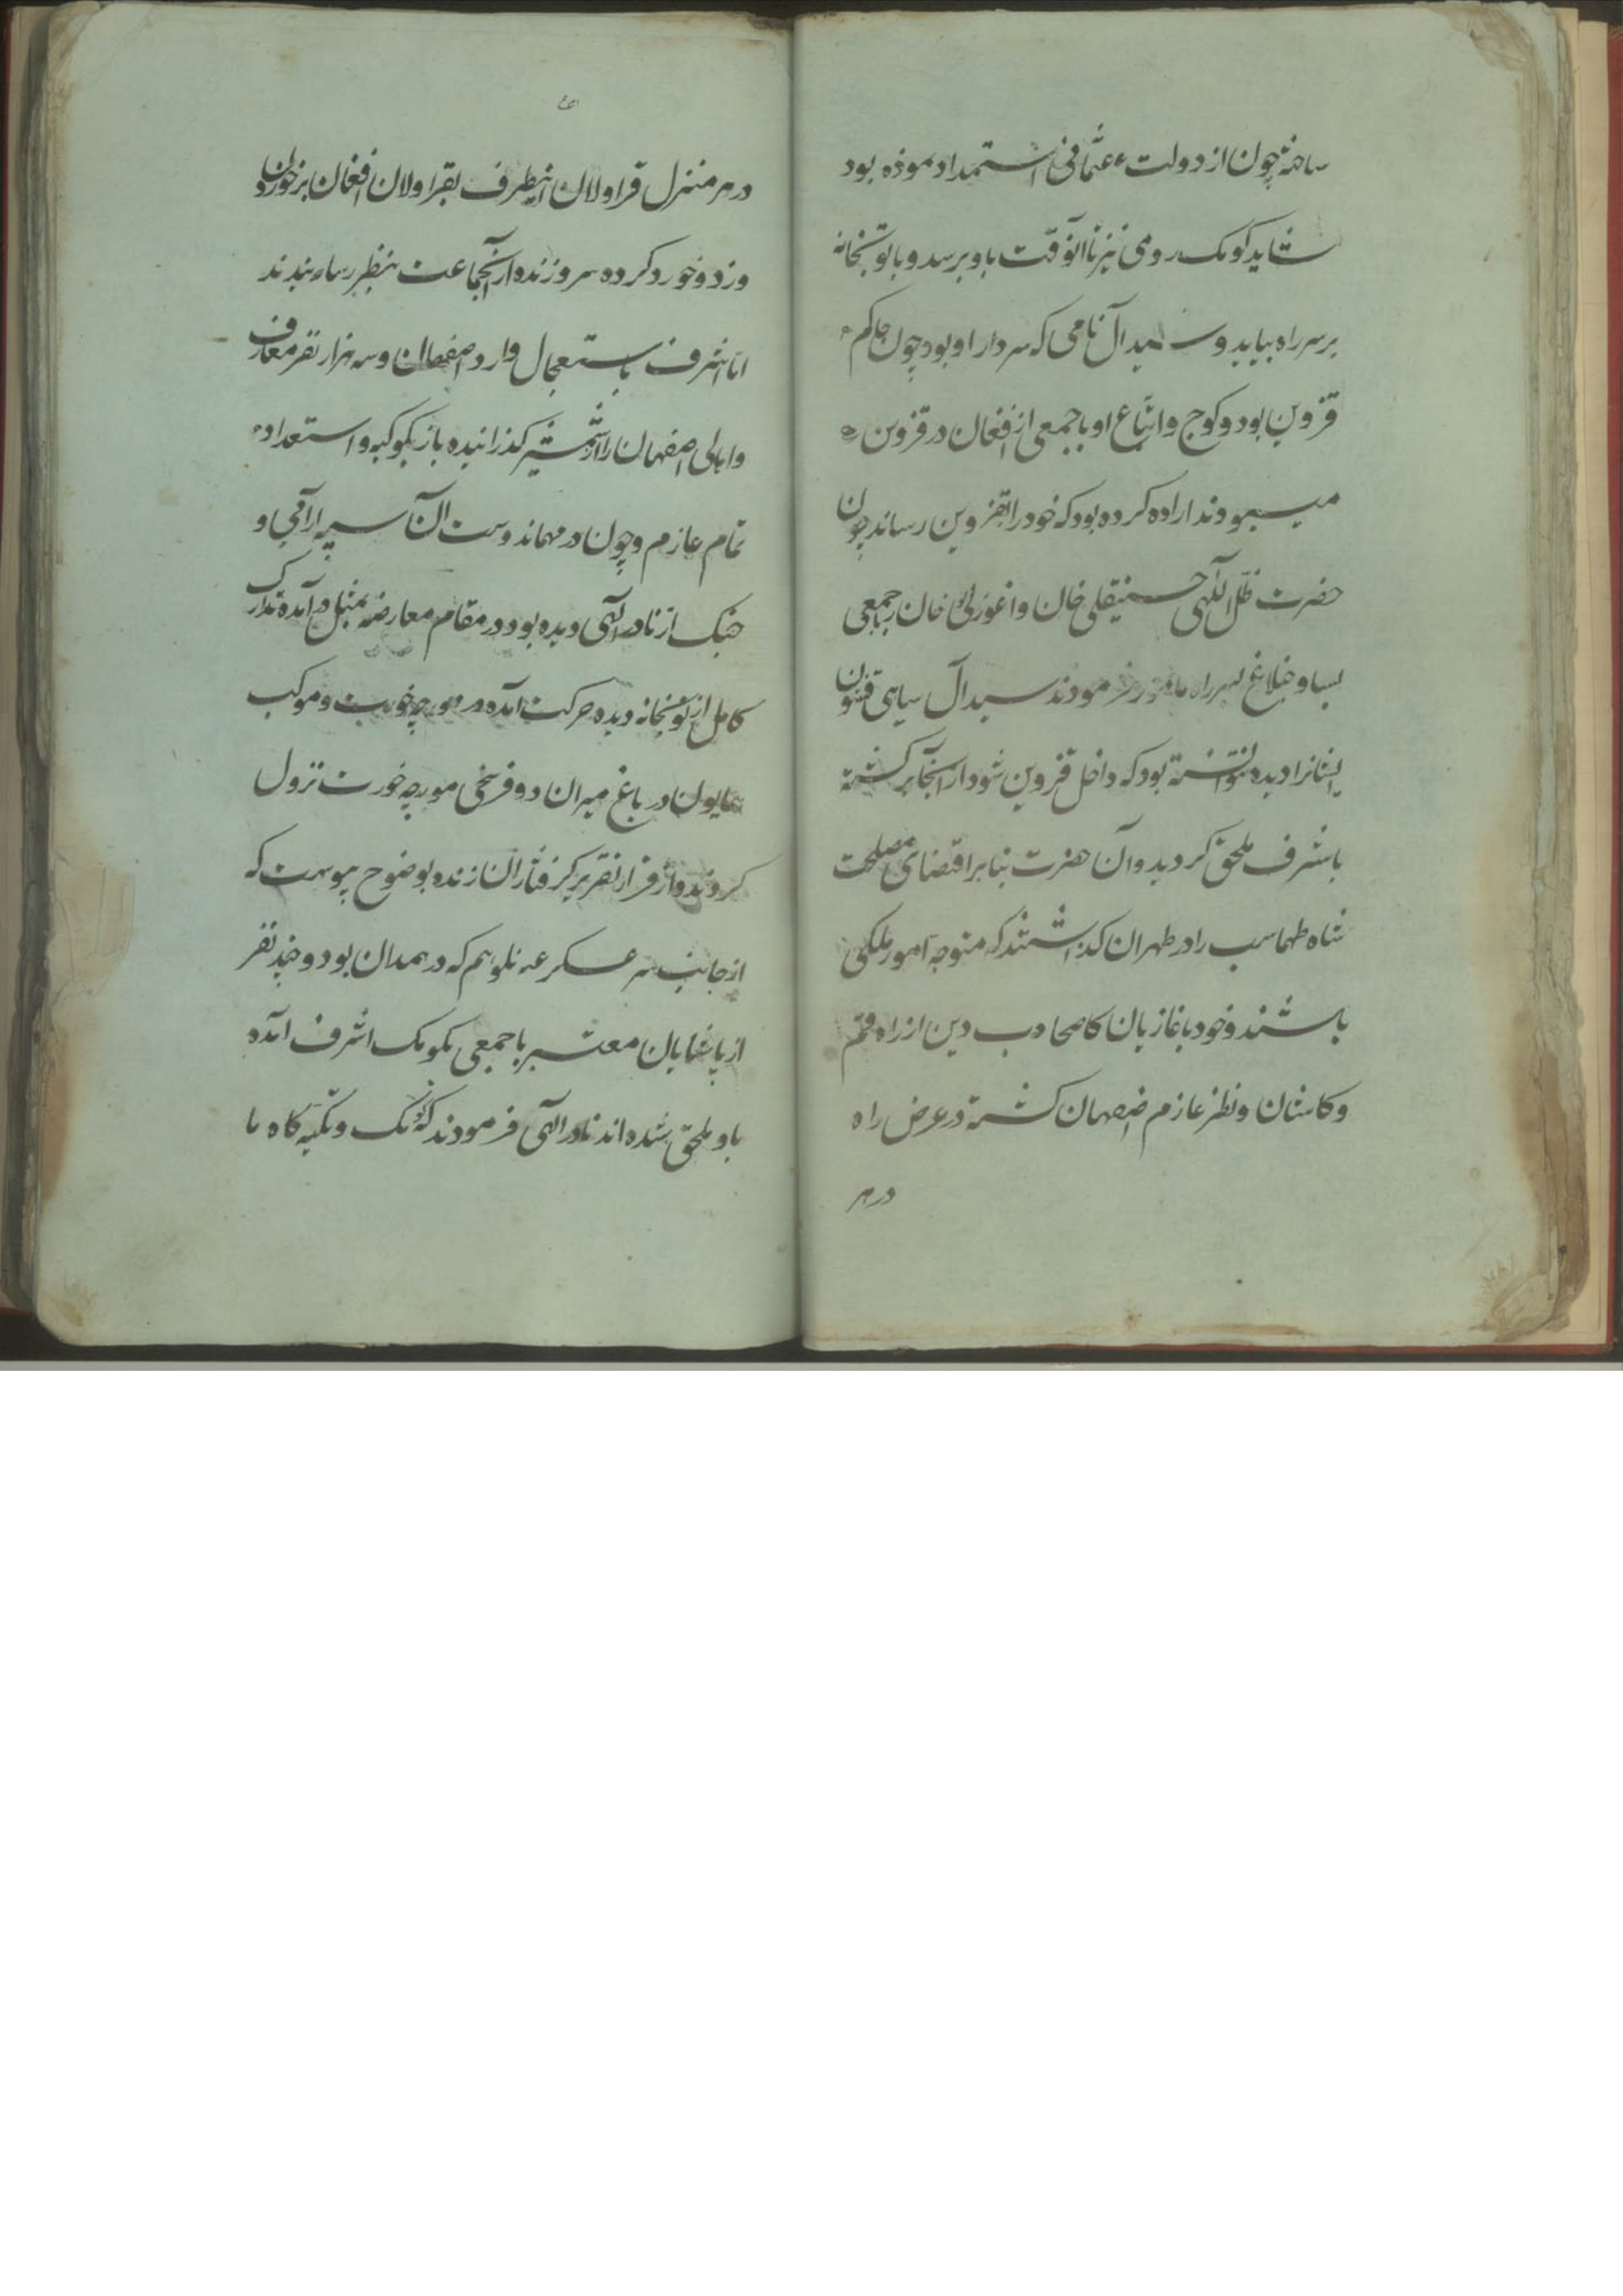 ساخته چون از دولت عثمانی استمداد نموده بود
شاید کومک رومی نیز تا آنوقت باو برسد و با توپخانه
بر سر راه بیاید و سیدال نامی که سردار او بود چون حاکم
قزوین بود و کوچ و اتباع او با جمعی از افغان در قزوین
میبودند اراده کرده بود که خود را بقزوین رساند چون
حضرت ظل اللهی حسینقلی خان و اغورلی خان را با جمعی
بساوخبلاغ بسر راه مامور فرمودند سیدال سیاهی قشون
ایشانرا دیده نتوانسته بود که داخل قزوین شود از آنجا برکشته
باشرف ملحق کردید و آن حضرت بنابر اقتضای مصلحت
شاه طهماسب را در طهران کذاشتند که متوجه امور ملکی
باشند و خود با غازیان دین از راه قم
و کاشان و نطنز عازم اصفهان کشته در عرض راه
در هر
در هر منزل قراولان اینطرف بقراولان افغان برخورده
و زد و خورد کرده سر و زنده از آنجماعت بنظر
اما اشرف باستعجال وارد اصفهان و سه هزار نفر معارف
و اهالی اصفهان را از شمشیر کذرانیده باز بکوکبه و استعداد
تمام عازم و چون در مهماندوست آن سپه آرائی و
جنک از نادر الهی دیده بود در مقام معارضه بمثل در آمده تدارک
کامل از توپخانه دیده حرکت آمده در مورچه خورت و موکب
همایون در باغ میران دو فرسخی مورچه خورت نزول
کردند و از قرار تقریر کرفتاران زنده بوضوح پیوست که
از جانب سر عسکر عثمانلو هم که در همدان بود و چند نفر
از پاشایان معتبر با جمعی بکومک اشرف آمده
باو ملحق شده اند نادر الهی فرمودند که کومک و تکیه کاه ما